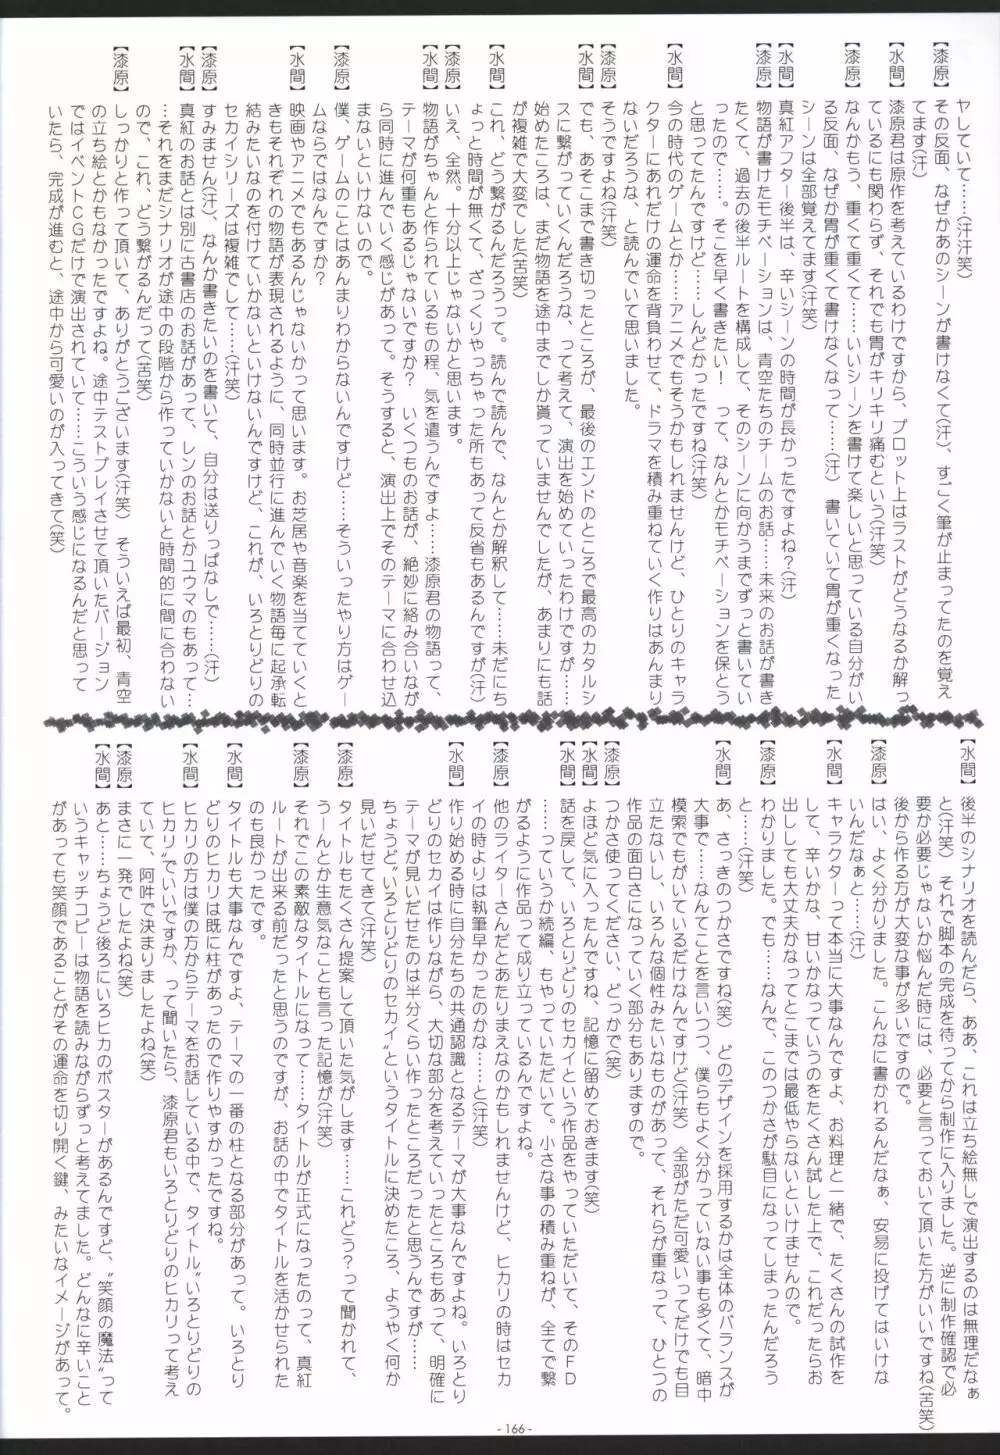 ヤしていて……(汗汗笑)
【漆原】その反面、なぜかあのシーンが書けなくて(汗)、すごく筆が止まってたのを覚え
てます(汗)
【水間】漆原君は原作を考えているわけですから、プロット上はラストがどうなるか解っ
ているにも関わらず、それでも胃がキリキリ痛むという(汗笑)
【漆原】なんかもう、重くて重くて……いいシーンを書けて楽しいと思っている自分がい
る反面、なぜか胃が重くて書けなくなって……(汗) 書いていて胃が重くなった
シーンは全部覚えてます(汗笑)
【水間】真紅アフター後半は、辛いシーンの時間が長かったですよね?(汗)
【漆原】物語が書けたモチベーションは、青空たちのチームのお話……未来のお話が書き
たくて、過去の後半ルートを構成して、そのシーンに向かうまでずっと書いてい
ったので……。そこを早く書きたい! って、なんとかモチベーションを保とう
と思ってたんですけど……しんどかったですね(汗笑)
【水間】今の時代のゲームとか……アニメでもそうかもしれませんけど、ひとりのキャラ
クターにあれだけの運命を背負わせて、ドラマを積み重ねていく作りはあんまり
ないだろうな、と読んでいて思いました。
【漆原】そうですよね(汗笑)
【水間】でも、あそこまで書き切ったところが、最後のエンドのところで最高のカタルシ
スに繋がっていくんだろうな、って考えて、演出を始めていったわけですが……
始めたころは、まだ物語を途中までしか貰っていませんでしたが、あまりにも話
が複雑で大変でした(苦笑)
【水間】これ、どう繋がるんだろうって。読んで読んで、なんとか解釈して……未だにち
ょっと時間が無くて、ざっくりやっちゃった所もあって反省もあるんですが(汗)
【漆原】いえ、全然。十分以上じゃないかと思います。
【水間】物語がちゃんと作られているもの程、気を遣うんですよ……漆原君の物語って、
テーマが何重もあるじゃないですか? いくつものお話が、絶妙に絡み合いなが
ら同時に進んでいく感じがあって。そうすると、演出上でそのテーマに合わせ込
まないといけないので。
【漆原】僕、ゲームのことはあんまりわからないんですけど……そういったやり方はゲー
ムならではなんですか?
【水間】映画やアニメでもあるんじゃないかって思います。お芝居や音楽を当てていくと
きもそれぞれの物語が表現されるように、同時並行に進んでいく物語毎に起承転
結みたいなのを付けていかないといけないんですけど、これが、いろとりどりの
セカイシリーズは複雑でして……(汗笑)
【漆原】すみません(汗)、なんか書きたいのを書いて、自分は送りっぱなしで……(汗)
【水間】真紅のお話とは別に古書店のお話があって、レンのお話とかユウマのもあって…
…それをまだシナリオが途中の段階から作っていかないと時間的に間に合わない
ので、これ、どう繋がるんだって(苦笑)
【漆原】しっかりと作って頂いて、ありがとうございます(汗笑) そういえば最初、青空
の立ち絵とかもなかったですよね。途中テストプレイさせて頂いたバージョン
ではイベントCGだけで演出されていて……こういう感じになるんだと思って
いたら、完成が進むと、途中から可愛いのが入ってきて(笑)
【水間】後半のシナリオを読んだら、ああ、これは立ち絵無しで演出するのは無理だなぁ
と(汗笑) それで脚本の完成を待ってから制作に入りました。逆に制作確認で必
要か必要じゃないか悩んだ時には、必要と言っておいて頂いた方がいいですね(苦笑)
後から作る方が大変な事が多いですので。
【漆原】はい、よく分かりました。こんなに書かれるんだなぁ、安易に投げてはいけな
いんだなぁと……(汗)
【水間】キャラクターって本当に大事なんですよ、お料理と一緒で、たくさんの試作を
して、辛いかな、甘いかなっていうのをたくさん試した上で、これだったらお
出ししても大丈夫かなってとこまでは最低やらないといけませんので。
【漆原】わかりました。でも……なんで、このつかさが駄目になってしまったんだろう
と……(汗笑)
【水間】あ、さっきのつかさですね(笑) どのデザインを採用するかは全体のバランスが
大事で……なんてことを言いつつ、僕らもよく分かっていない事も多くて、暗中
模索でもがいているだけなんですけど(汗笑) 全部がただ可愛いってだけでも目
立たないし、いろんな個性みたいなものがあって、それらが重なって、ひとつの
作品の面白さになっていく部分もありますので。
【漆原】つかさ使ってください、どっかで(笑)
【水間】よほど気に入ったんですね、記憶に留めておきます(笑)
【漆原】話を戻して、いろとりどりのセカイという作品をやっていただいて、そのFD
……っていうか続編、もやっていただいて。小さな事の積み重ねが、全てで繋
がるように作品って成り立っているんですよね。
【漆原】他のライターさんだとあたりまえなのかもしれませんけど、ヒカリの時はセカ
イの時よりは執筆早かったのかな……と(汗笑)
【水間】作り始める時に自分たちの共通認識となるテーマが大事なんですよね。いろとり
どりのセカイは作りながら、大切な部分を考えていったところもあって、明確に
テーマが見いだせたのは半分くらい作ったところだったと思うんですが……
ちょうど〝いろとりどりのセカイ〟というタイトルに決めたころ、ようやく何か
見いだせてきて(汗笑)
【漆原】タイトルもたくさん提案して頂いた気がします……これどう?って聞かれて、
うーんとか生意気なことも言った記憶が(汗笑)
【漆原】それでこの素敵なタイトルになって……タイトルが正式になったのって、真紅
ルートが出来る前だったと思うのですが、お話の中でタイトルを活かせられた
のも良かったです。
【水間】タイトルも大事なんですよ、テーマの一番の柱となる部分があって。いろとり
どりのヒカリは既に柱があったので作りやすかったですね。
【水間】ヒカリの方は僕の方からテーマをお話している中で、タイトル〝いろとりどりの
ヒカリ〟でいいですか、って聞いたら、漆原君もいろとりどりのヒカリって考え
ていて、阿吽で決まりましたよね(笑)
【漆原】まさに一発でしたよね(笑)
【水間】あと……ちょうど後ろにいろヒカのポスターがあるんですど、〝笑顔の魔法〟って
いうキャッチコピーは物語を読みながらずっと考えてました。どんなに辛いこと
があっても笑顔であることがその運命を切り開く鍵、みたいなイメージがあって。
- 166 -